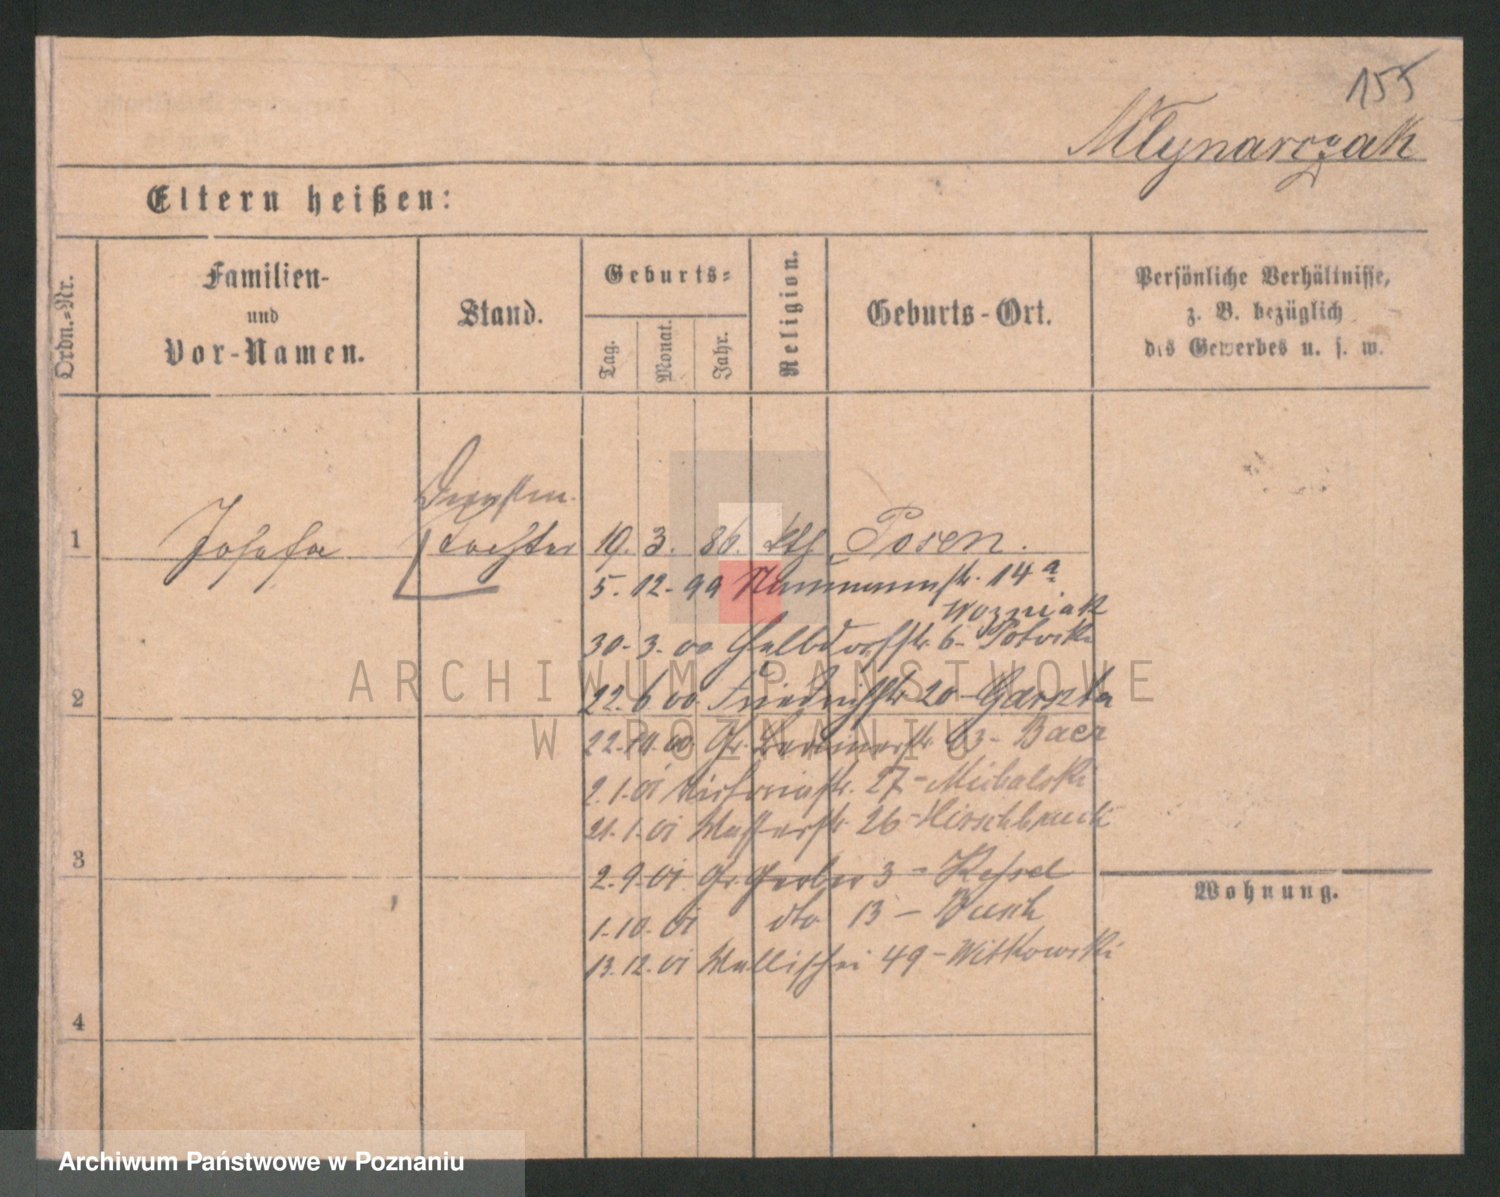 155
Młynarczak
Eltern heißen:
Ordn.-Nr.
Familien-
und
Vor-Namen.
Stand.
Geburts-
Tag.
Monat.
Jahr.
Religion.
Geburts-Ort.
Persönliche Verhältnisse,
z. B. bezüglich
des Gewerbes u. s. w.
1 Josefa tochter 19. 3. 86. kth Posen.
5. 12. 99 Naumannstr. 14a
Wozniak
30. 3. 00 6-
2
22. 6. 00. Friedrichstr. 20 - Garszka
22. 10. 00. Gr. Berlinerstr. 63 - Baer
2. 1. 01 Victoriastr. 27 - Michalski
21. 1. 01 Wasserstr. 26 - Hirschbruch
3
2. 9. 01. Gr. Gerber 3 - Kessel
1. 10. 01 dto 13 - Busch
13. 12. 01 Wallischei 49 - Witkowski
Wohnung.
4
ARCHIWUM PAŃSTWOWE
W POZNANIU
Archiwum Państwowe w Poznaniu